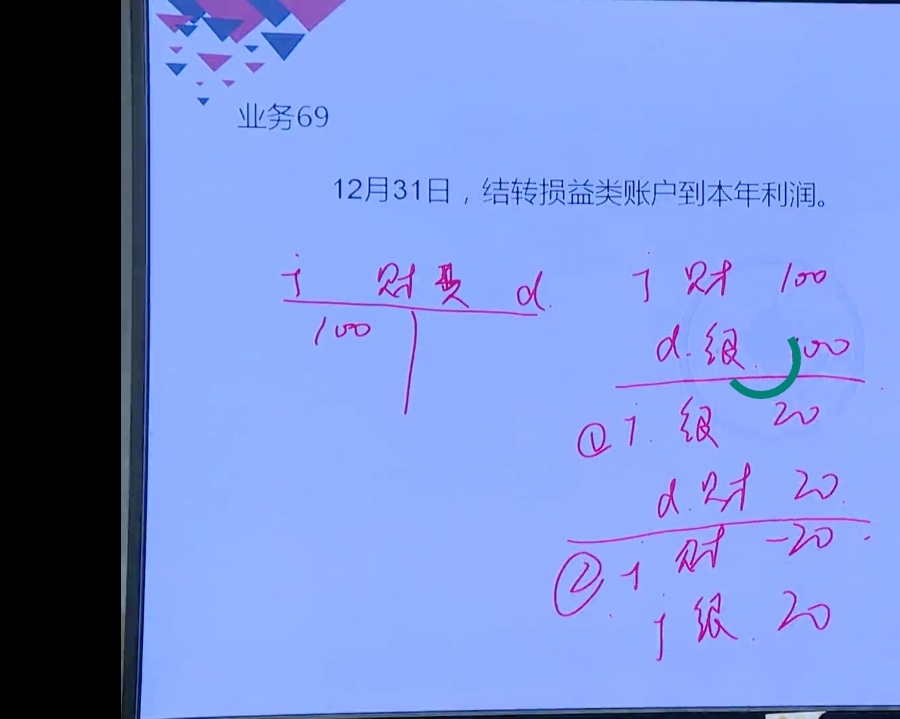 业务69
12月31日，结转损益类账户到本年利润。
j 财费 d.
100
j 财 100
d. 银. 100
① j. 银 20
d. 财 20.
② j 财 -20.
j 银. 20